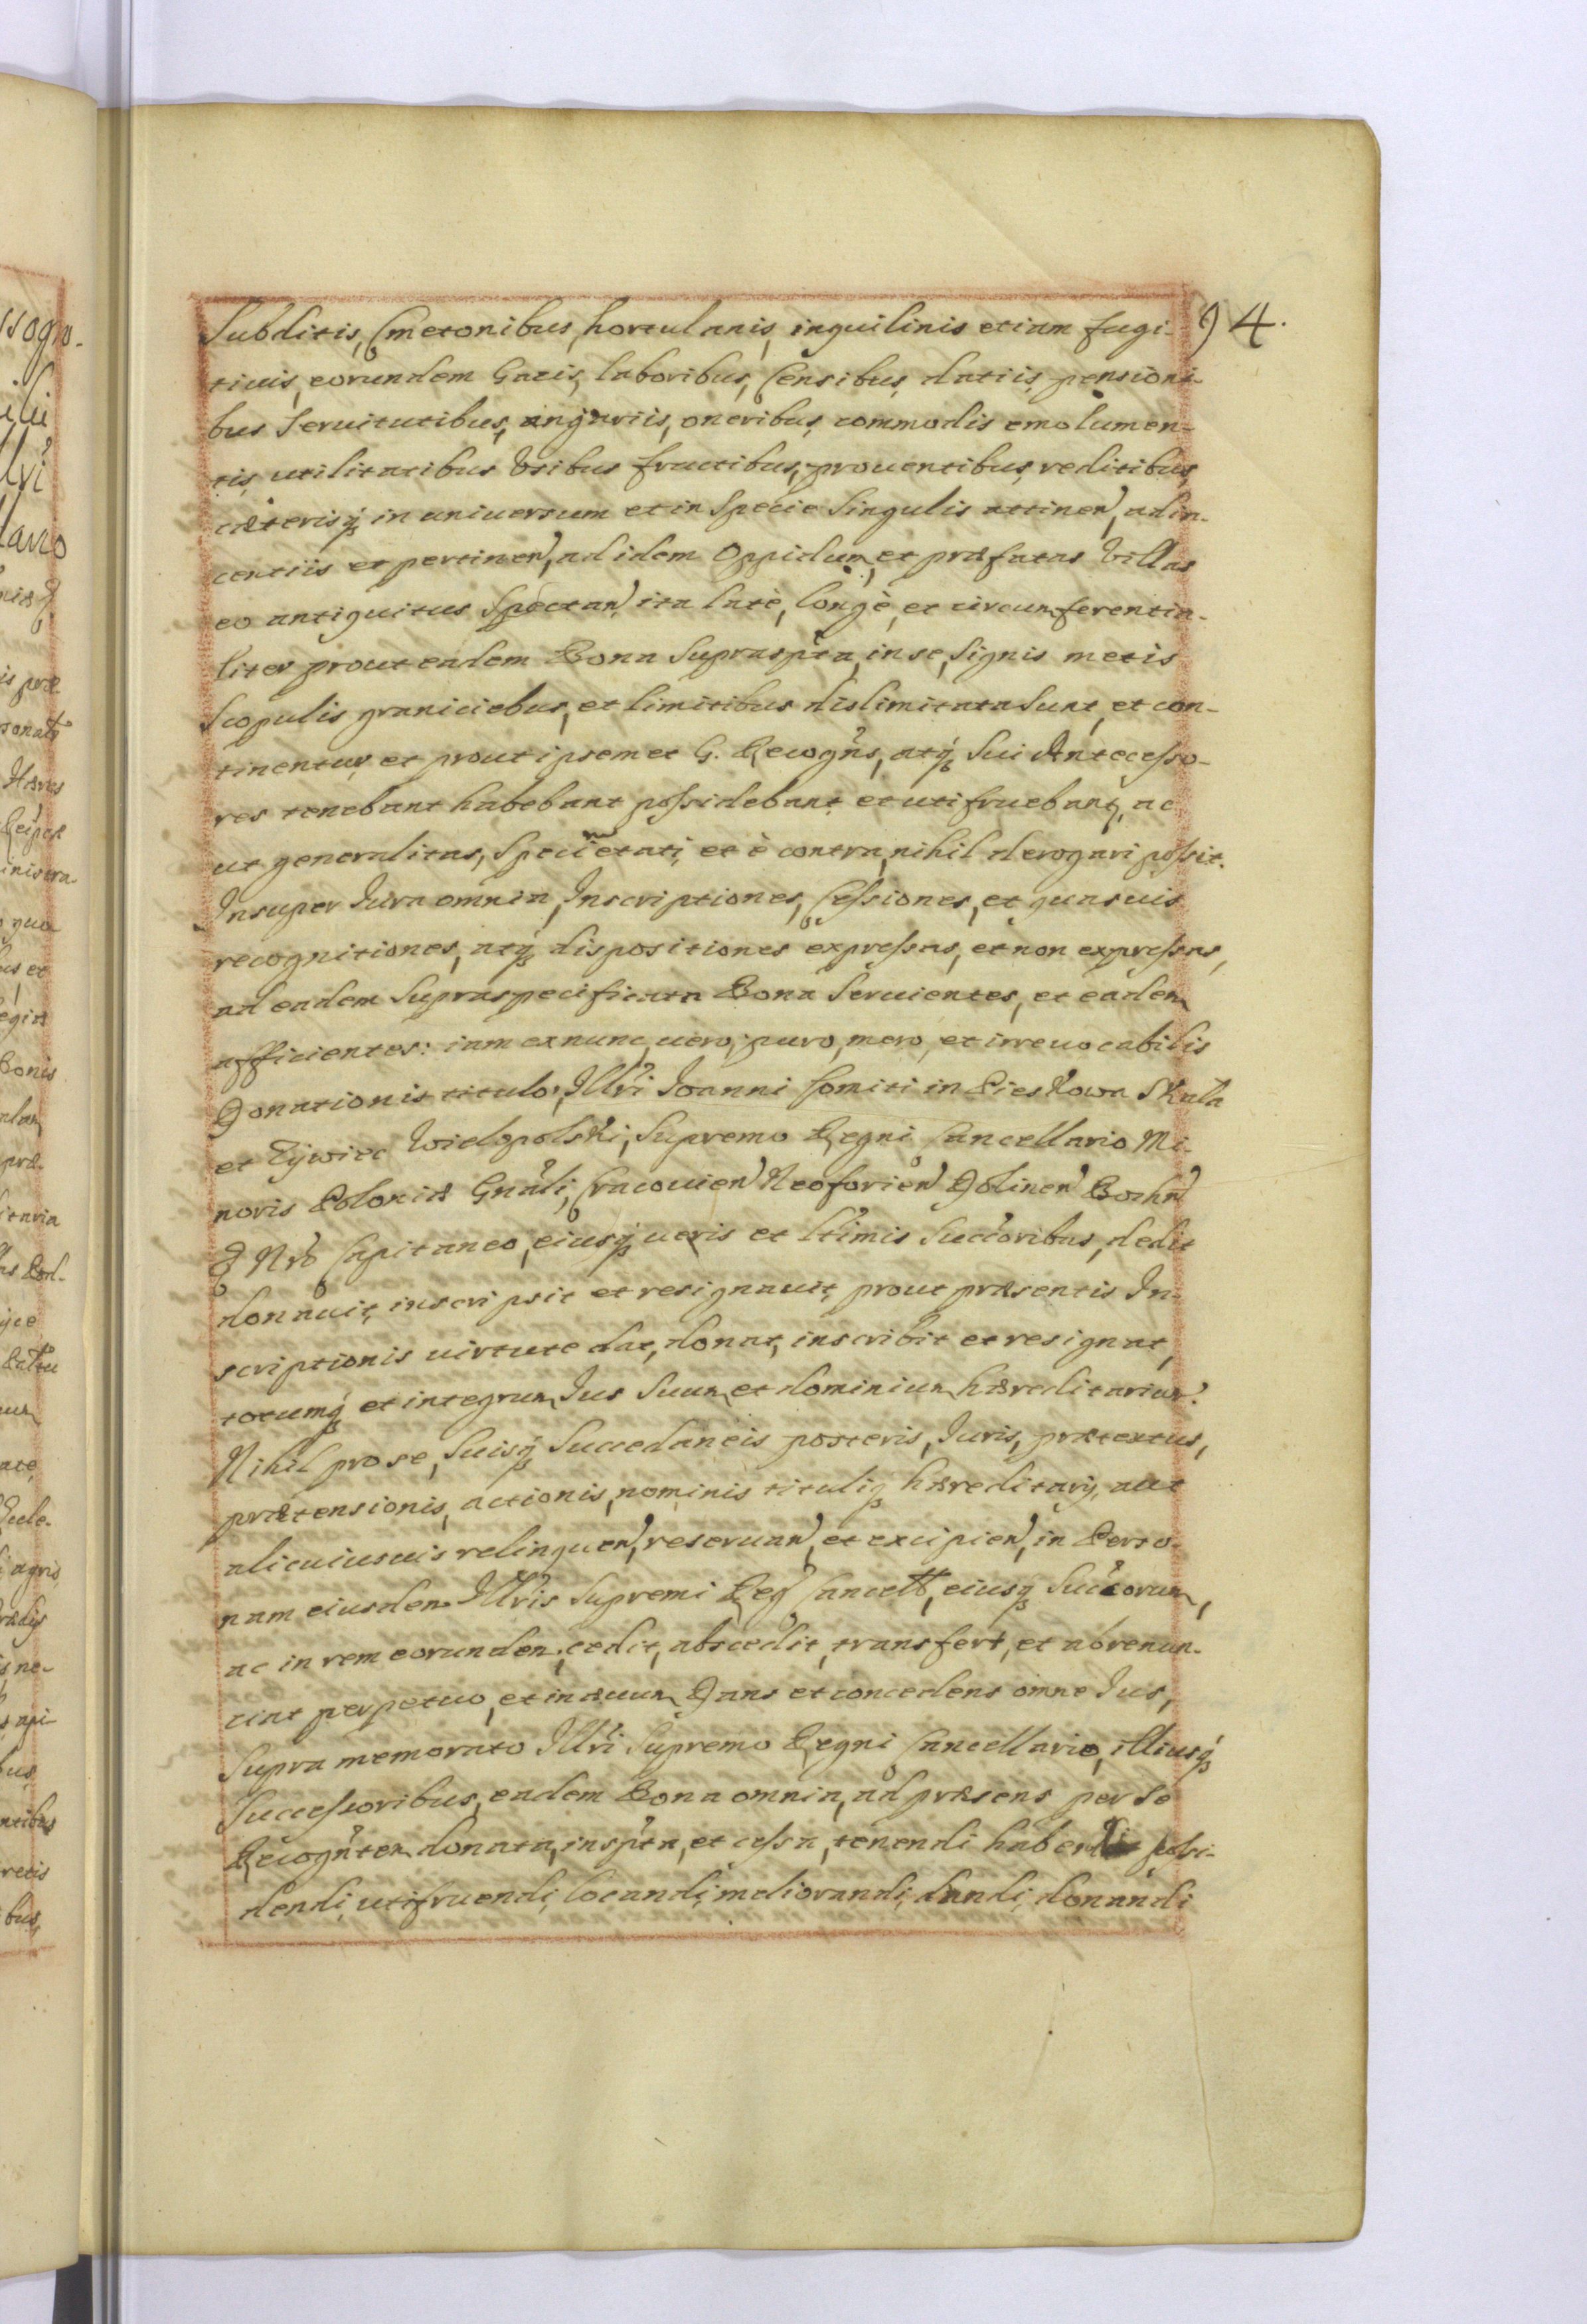 94.
Subditis, Cmetonibus, hortulanis, inquilinis etiam fugi-
tiuis, eorundem Gazis, laboribus, Censibus, datiis, pensioni-
bus Seruitutibus, angariis, oneribus, commodis emolumen-
tis, utilitatibus Vsibus fructibus, prouentibus, reditibus,
cæterisq́ꝫ in uniuersum et in Specie Singulis attinen, adia-
centiis et pertinen, ad idem Oppidum, et præfatas Villas
eo antiquitus Spectan, ita latè, longè, et circumferentia-
liter prout eadem Bona Supraspta, in se, Signis metis
Scopulis graniciebus, et limitibus dislimitata Sunt, et con-
tinentur, et prout ipsemet G. Recogns, atq́ꝫ Sui Antecesso-
res tenebant habebant possidebant, et utifruebant, ac
ut generalitas, Specietati, et è contra, nihil derogari possit.
Insuper Iura omnia, Inscriptiones, Cessiones, et quasuis
recognitiones, atq́ꝫ dispositiones expressas, et non expressas,
ad eadem Supraspecificata Bona Seruientes, et eadem
afficientes: iam ex nunc, uero, puro, mero, et irreuocabilis
Donationis titulo, Illri Ioanni Comiti in Pieskowa Skala
et Zywiec Wielopolski, Supremo Regni Cancellario Mi-
noris Poloniæ Gnali, Cracouien Neoforien Dolinen Bochn
& Nro Capitaneo, eiusq́ꝫ ueris et ltimis Succoribus, dedit
donauit, inscripsit et resignauit, prout præsentis In-
scriptionis uirtute dat, donat, inscribit et resignat,
totumq́ꝫ et integrum Ius Suum et dominium hæreditarium.
Nihil pro se, Suisq́ꝫ Succedaneis posteris, Iuris, prætextus,
prætensionis, actionis, nominis tituliqꝫ hæreditarij, aut
alicuiusuis relinquen, reseruan, et excipien, in Perso-
nam eiusdem Illris Supremi Reg Cancell, eiusqꝫ Succorum,
ac in rem eorundem, cedit, abscedit, transfert, et abrenun-
ciat perpetuo, et in æuum Dans et concedens omne Ius,
Supra memorato Illri Supremo Regni Cancellario, illiusq́ꝫ
Successoribus, eadem Bona omnia, ad præsens per Se
Recognten donata, inspta, et cessa, tenendi habendi possi-
dendi, utifruendi, locandi, meliorandi, dandi, donandi